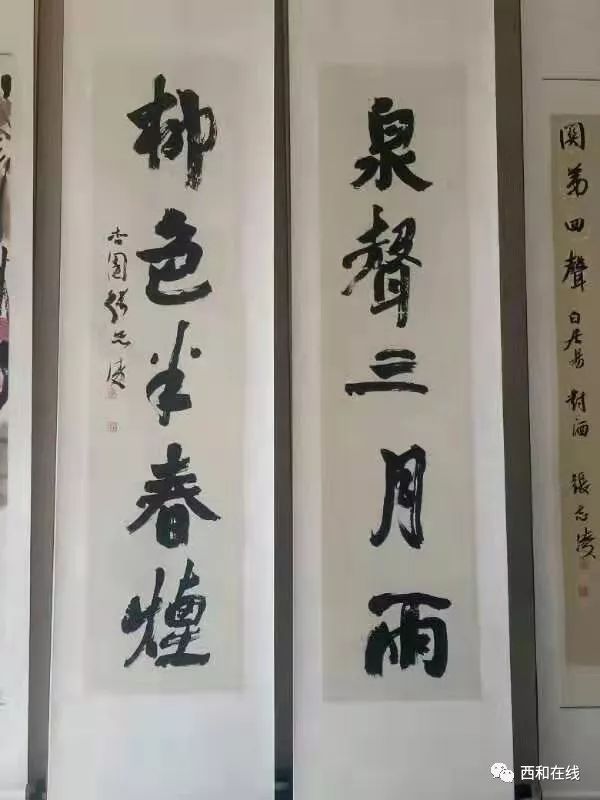 關第四聲 白居易 對酒 張志淩
泉聲三月雨
柳色半春煙
杏園張志淩
西和在线